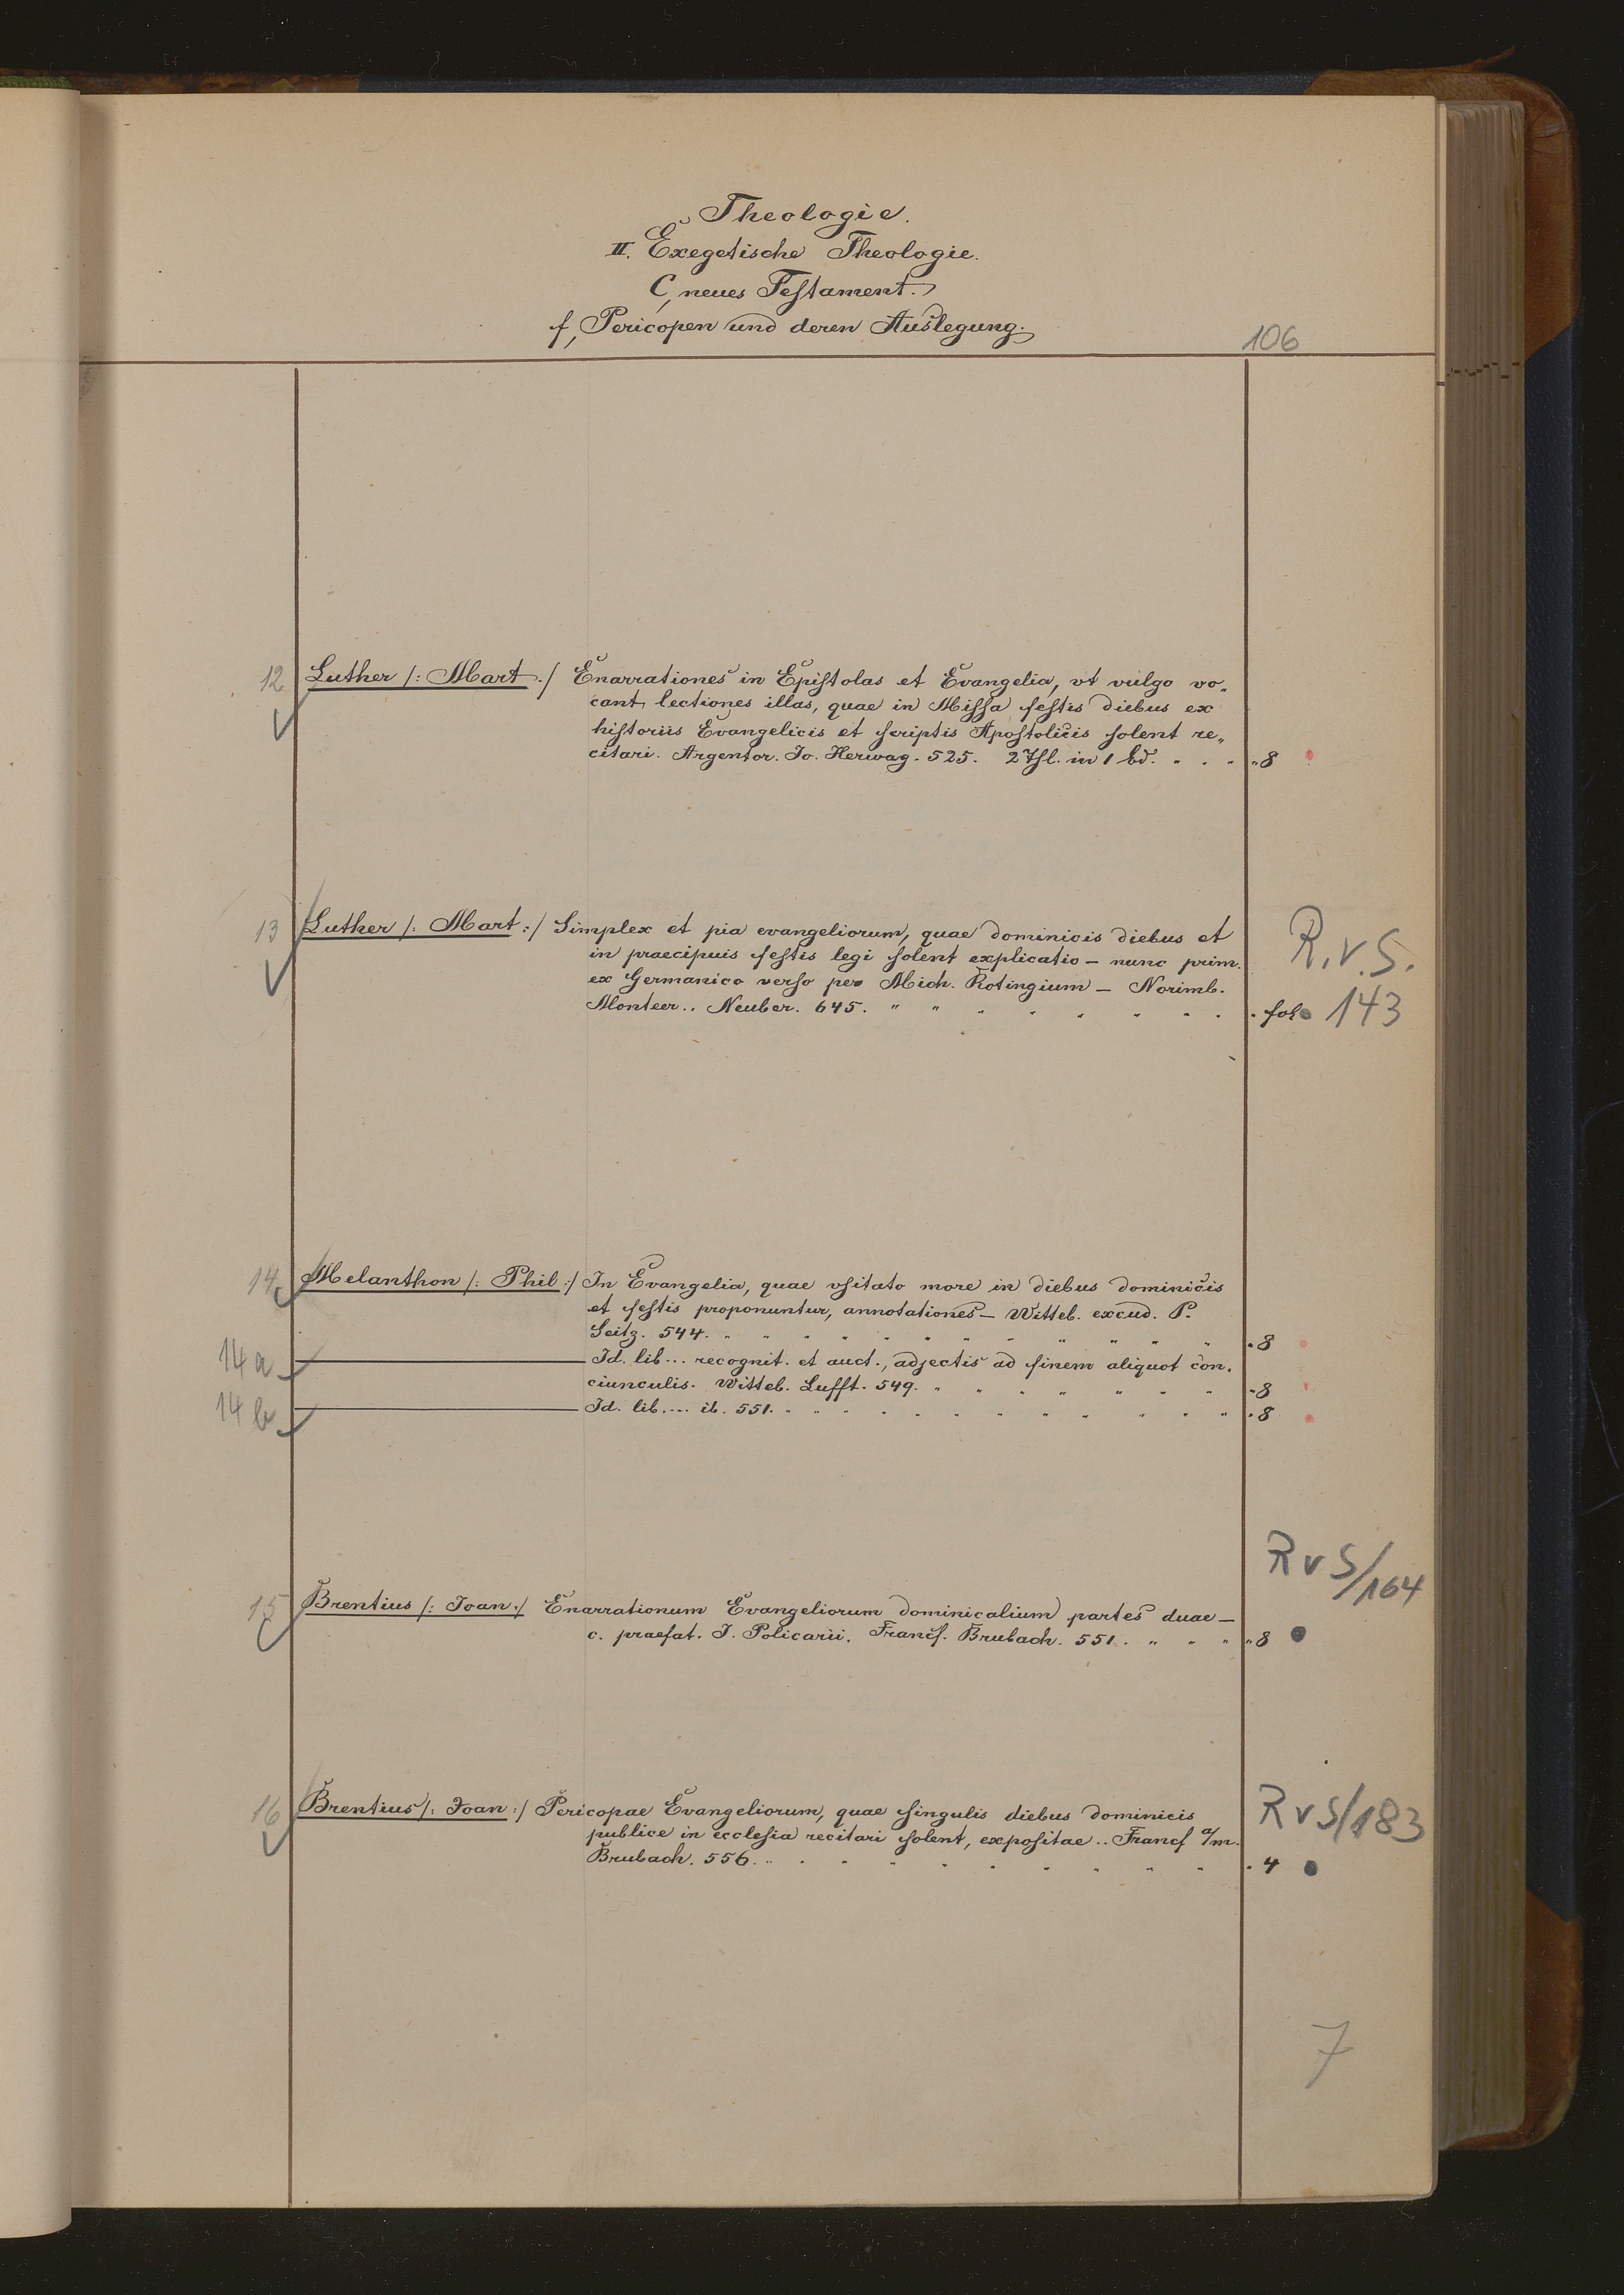 Theologie.
II. Exegetische Theologie.
C, neues Testament.
f, Pericopen und deren Auslegung.
106
12 Luther /: Mart :/ Enarrationes in Epistolas et Evangelia, vt vulgo vo„
cant, lectiones illas, quae in Missa festis diebus ex
historiis Evangelicis et scriptis Apostolicis solent re„
citari. Argentor. Jo. Herwag. 525. 2 Thl. in 1 Bd. " . " " 8
13 Luther /: Mart :/ Simplex et pia evangeliorum, quae dominicis diebus et
in praecipuis festis legi solent explicatio – nunc prim.
ex Germanico verso per Mich. Rotingium – Norimb.
Monteer.. Neuber. 645. " " " " " " " " " fol
R.v.S.
143
14 Melanthon /: Phil :/ In Evangelia, quae vsitato more in diebus dominicis
et festis proponuntur, annotationes – Witteb. excud. P.
Seitz. 544. " " " " " " " " " " " " 8
14a Id. lib... recognit. et auct., adjectis ad finem aliquot con„
ciunculis. Witteb. Lufft. 549. " " " " " " " " 8
14b Id. lib.... ib. 551. " " " " " " " " " " " " 8
R v S/164
15 Brentius /: Joan :/ Enarrationum Evangeliorum dominicalium partes duae –
c. praefat. J. Policarii. Francf. Brubach. 551. " " " " 8
16 Brentius /: Joan :/ Pericopae Evangeliorum, quae singulis diebus dominicis
publice in ecclesia recitari solent, expositae .. Francf a/m.
Brubach. 556. " " " " " " " " " " " 4
R v S/183
7